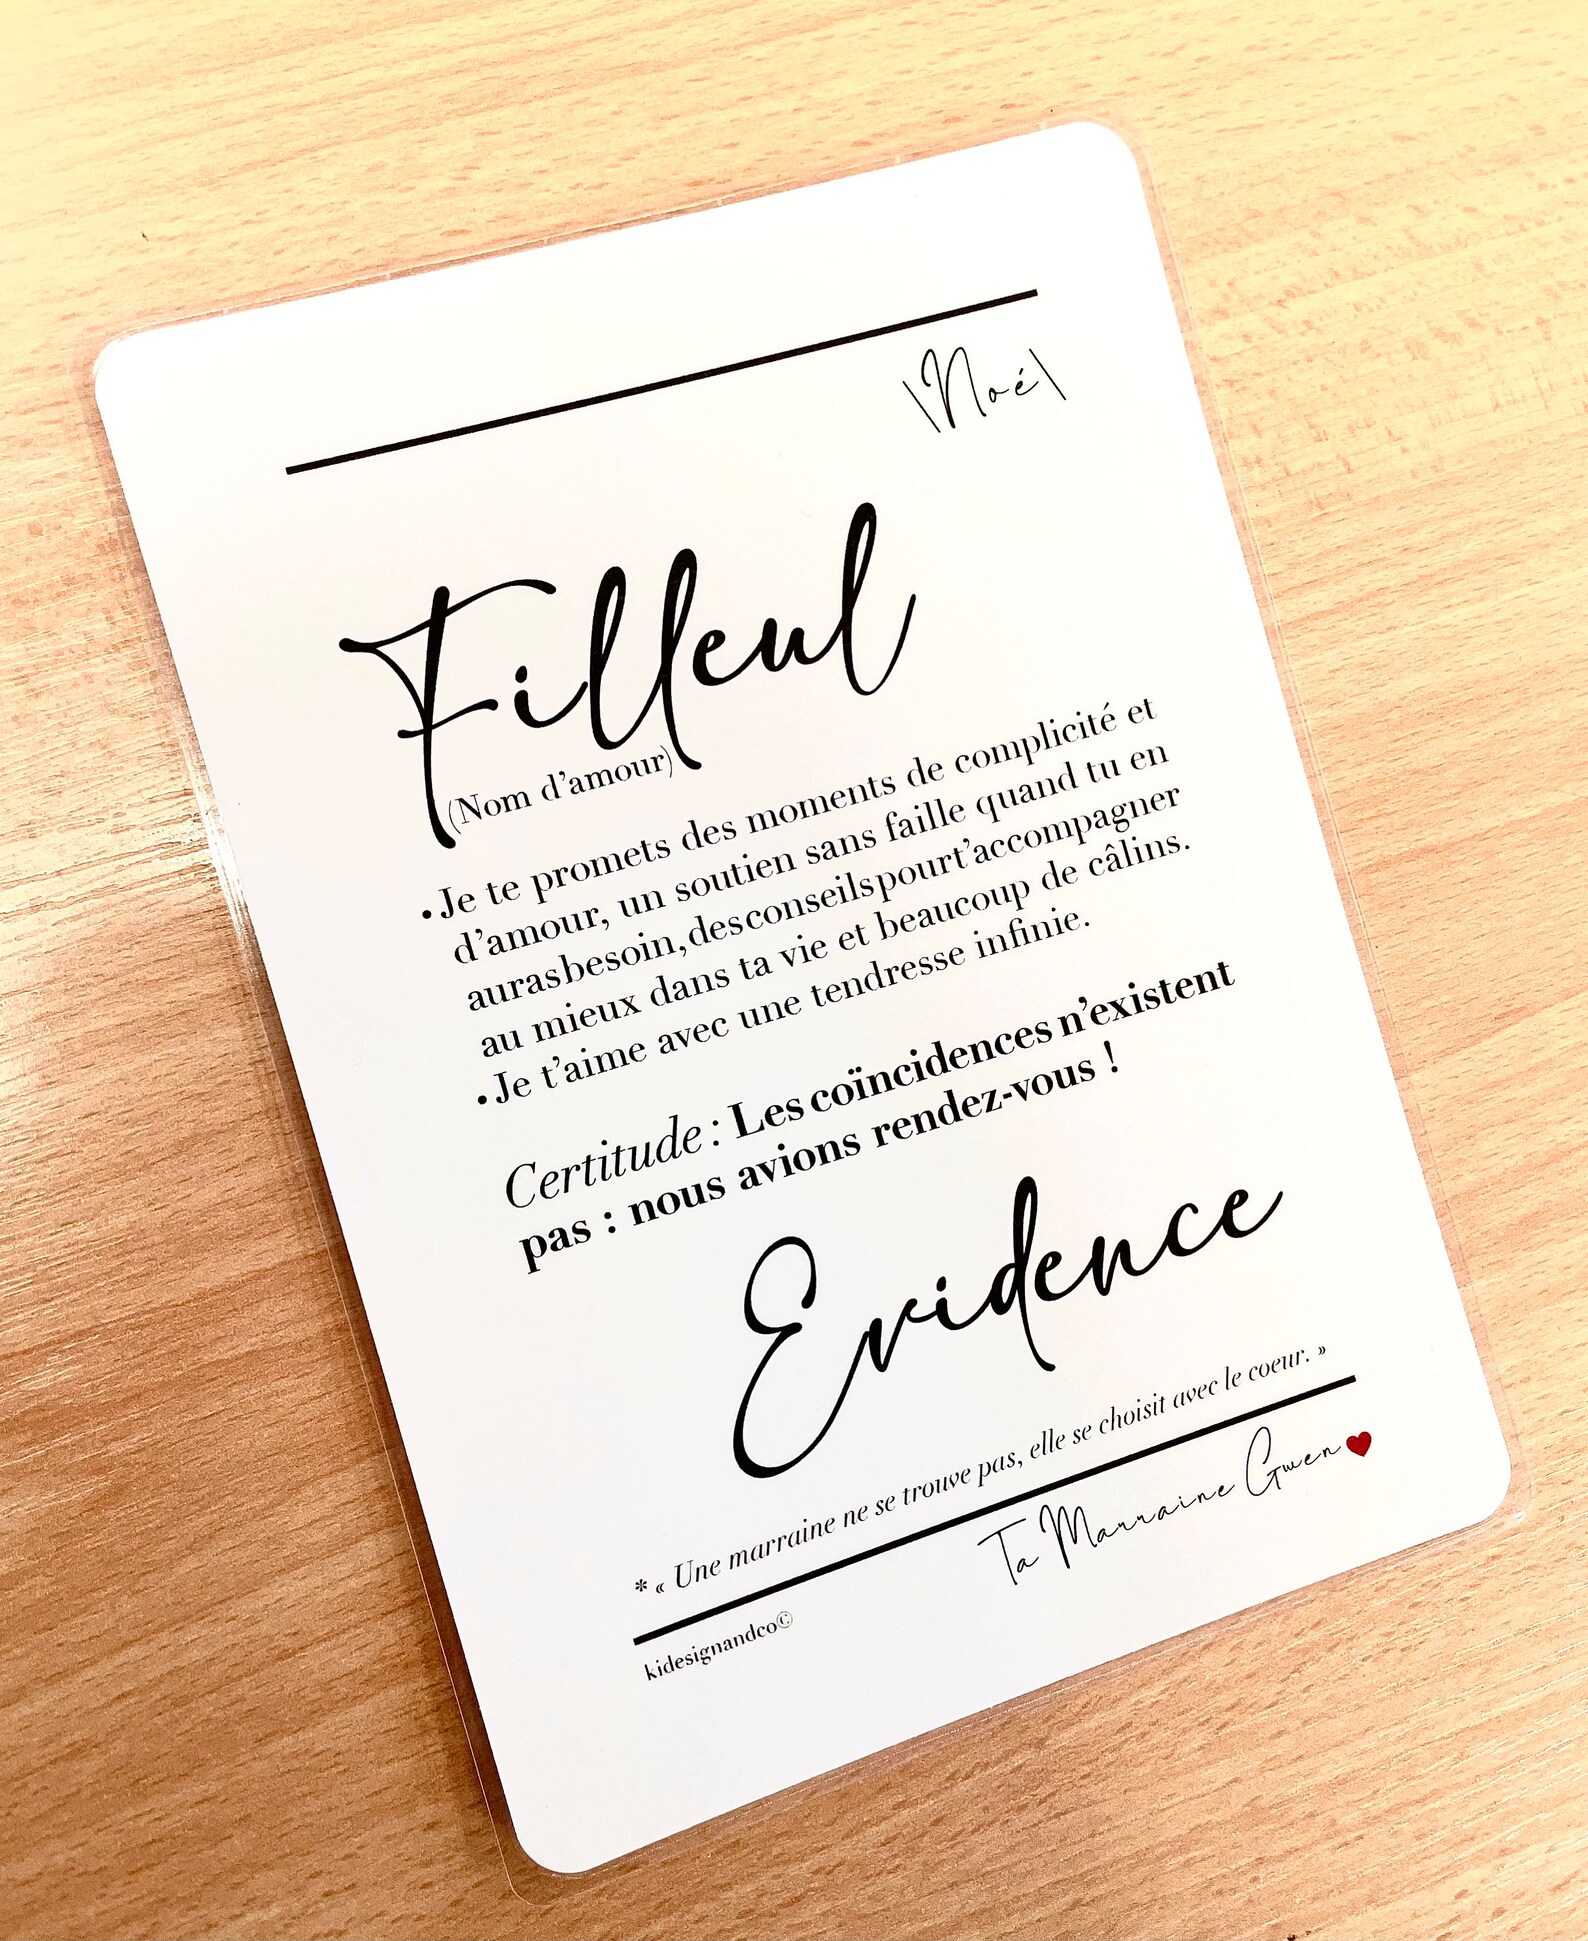 \Noé\
Filleul
(Nom d'amour)
• Je te promets des moments de complicité et
d'amour, un soutien sans faille quand tu en
auras besoin, des conseils pour t'accompagner
au mieux dans ta vie et beaucoup de câlins.
• Je t'aime avec une tendresse infinie.
Certitude : Les coïncidences n'existent
pas : nous avions rendez-vous !
Evidence
* « Une marraine ne se trouve pas, elle se choisit avec le coeur. »
Ta Marraine Gwen ♥
kidesignandco©